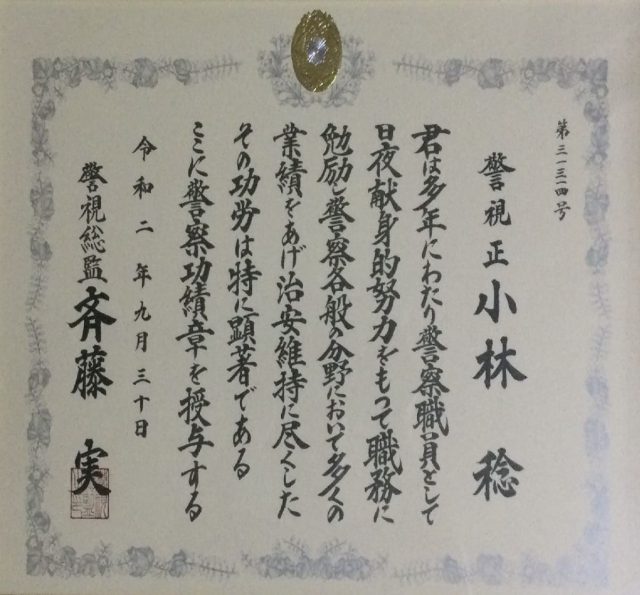 第三一三四号
警視正 小林 稔
君は多年にわたり警察職員として
日夜献身的努力をもって職務に
勉励し警察各般の分野において多くの
業績をあげ治安維持に尽くした
その功労は特に顕著である
ここに警察功績章を授与する
令和二年九月三十日
警視総監 斉藤 実